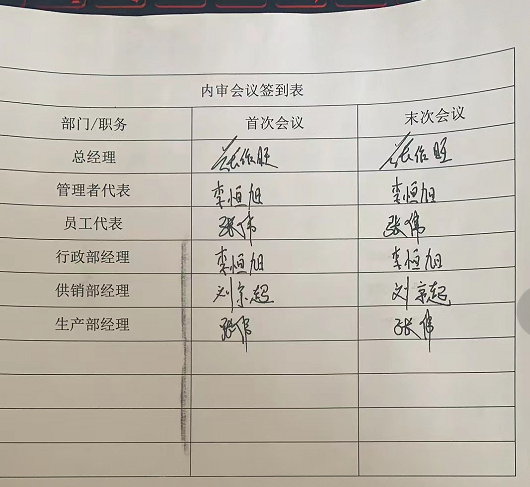 内审会议签到表
部门/职务 首次会议 末次会议
总经理
管理者代表 李恒旭 李恒旭
员工代表 张伟 张伟
行政部经理 李恒旭 李恒旭
供销部经理 刘京超 刘京超
生产部经理 张伟 张伟